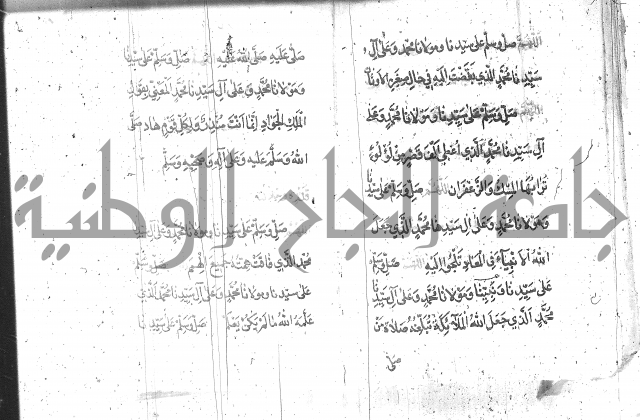 اللهم صل وسلم على سيدنا ومولانا محمد وعلى آل
سيدنا محمد الذي إليه في حال
صل وسلم على سيدنا ومولانا محمد وعلى
آل سيدنا محمد الذي أعطي ألف قصر من لؤلؤ
ترابها المسك والزعفران اللهم صل وسلم على سيدنا
ومولانا محمد وعلى آل سيدنا محمد الذي جعل
الله الأنبياء في تلتجئ إليه صل وسلم
على سيدنا ونبينا ومولانا محمد وعلى آل سيدنا
محمد الذي جعل الله الملائكة تبلغه صلاة من
صلى
صلى عليه صلى الله عليه صل وسلم على سيدنا
ومولانا محمد وعلى آل سيدنا محمد
الملك الجواد إنما أنت منذر ولكل قوم هاد صلى
الله وسلم عليه وعلى آله وصحبه وسلم
صل وسلم على سيدنا ومولانا محمد وعلى آل سيدنا
محمد الذي جميع صل وسلم
على سيدنا ومولانا محمد وعلى آل سيدنا محمد الذي
علمه الله ما لم يكن يعلم صل وسلم على سيدنا
جامعة النجاح الوطنية